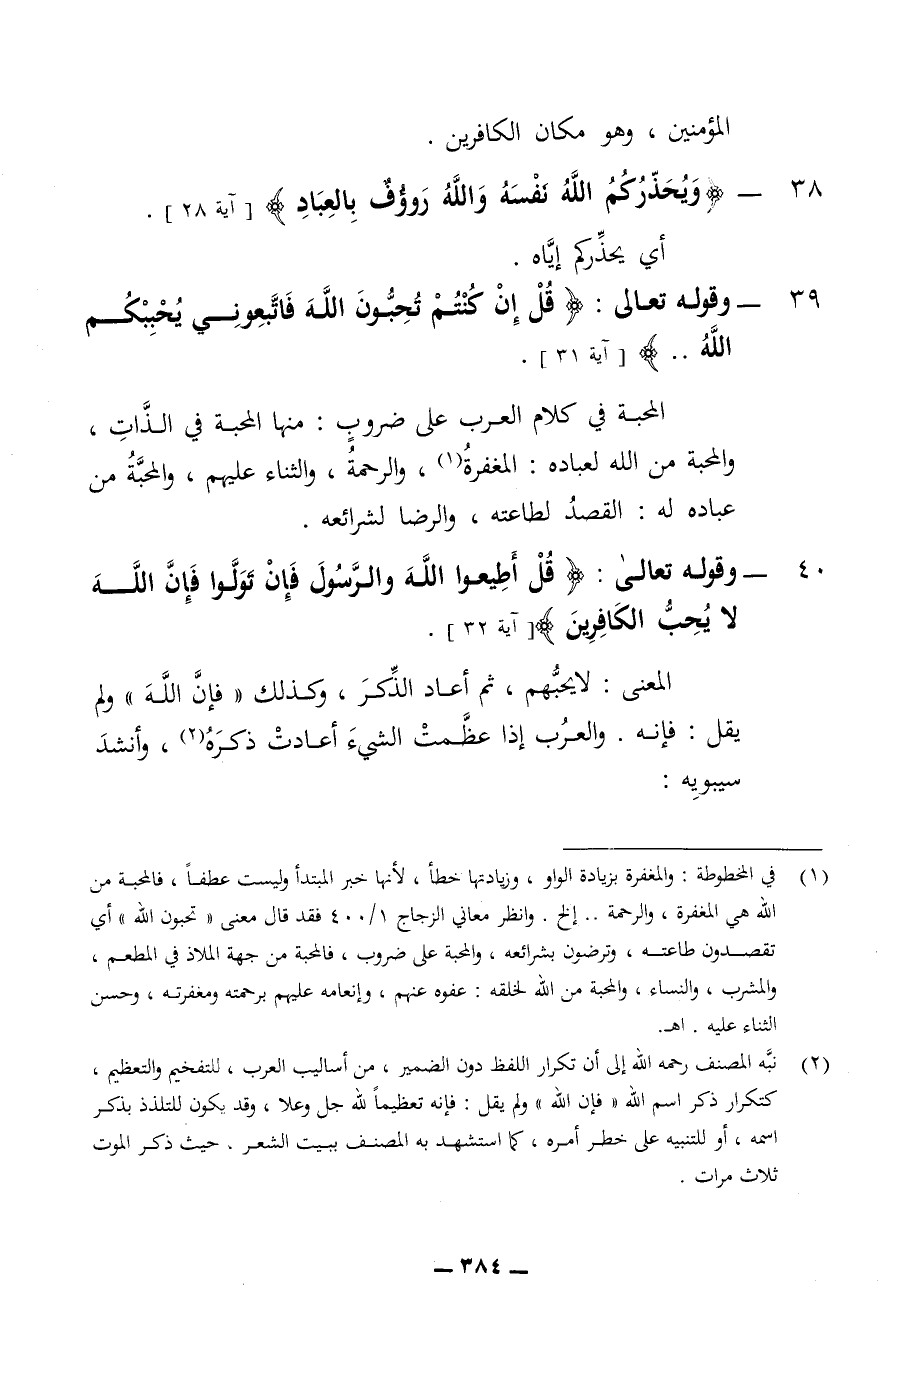 المؤمنين ، وهو مكان الكافرين .
٣٨ ــ ﴿ وَيُحَذِّرُكُمُ اللَّهُ نَفْسَهُ وَاللَّهُ رَووُفٌ بِالعِبَادِ ﴾ [ آية ٢٨ ] .
أي يحذِّركم إيَّاه .
٣٩ ــ وقوله تعالى : ﴿ قُلْ إِنْ كُنْتُمْ تُحِبُّونَ اللَّهَ فَاتَّبِعونِي يُحْبِبْكُم
اللَّهُ .. ﴾ [ آية ٣١ ] .
المحبة في كلام العرب على ضروبٍ : منها المحبة في الذَّاتِ ،
والمحبة من الله لعباده : المغفرةُ(١) ، والرحمةُ ، والثناء عليهم ، والمحبَّةُ من
عباده له : القصدُ لطاعته ، والرضا لشرائعه .
٤٠ ــ وقوله تعالىٰ : ﴿ قُلْ أَطِيعوا اللَّهَ والرَّسُولَ فَإنْ تَوَلَّوا فَإنَّ اللَّهَ
لا يُحِبُّ الكَافِرِينَ ﴾[ آية ٣٢ ] .
المعنى : لايحبُّهم ، ثم أعاد الذِّكرَ ، وكذلك « فإنَّ اللَّهَ » ولم
يقل : فإنه . والعرُب إذا عظَّمتْ الشيءَ أعادتْ ذكرَهُ(٢) ، وأنشدَ
سيبويهِ :
(١) في المخطوطة : والمغفرة بزيادة الواو ، وزيادتها خطأ ، لأنها خبر المبتدأ وليست عطفاً ، فالمحبة من
الله هي المغفرة ، والرحمة .. إلخ . وانظر معاني الزجاج ٤٠٠/١ فقد قال معنى « تحبون الله » أي
تقصدون طاعته ، وترضون بشرائعه ، والمحبة على ضروب ، فالمحبة من جهة الملاذ في المطعم ،
والمشرب ، والنساء ، والمحبة من الله لخلقه : عفوه عنهم ، وإنعامه عليهم برحمته ومغفرته ، وحسن
الثناء عليه . اهـ.
(٢) نبَّه المصنف رحمه الله إلى أن تكرار اللفظ دون الضمير ، من أساليب العرب ، للتفخيم والتعظيم ،
كتكرار ذكر اسم الله « فإن الله » ولم يقل : فإنه تعظيماً لله جل وعلا ، وقد يكون للتلذذ بذكر
اسمه ، أو للتنبيه على خطر أمره ، كما استشهد به المصنف ببيت الشعر . حيث ذكر الموت
ثلاث مرات .
ــ ٣٨٤ ــ